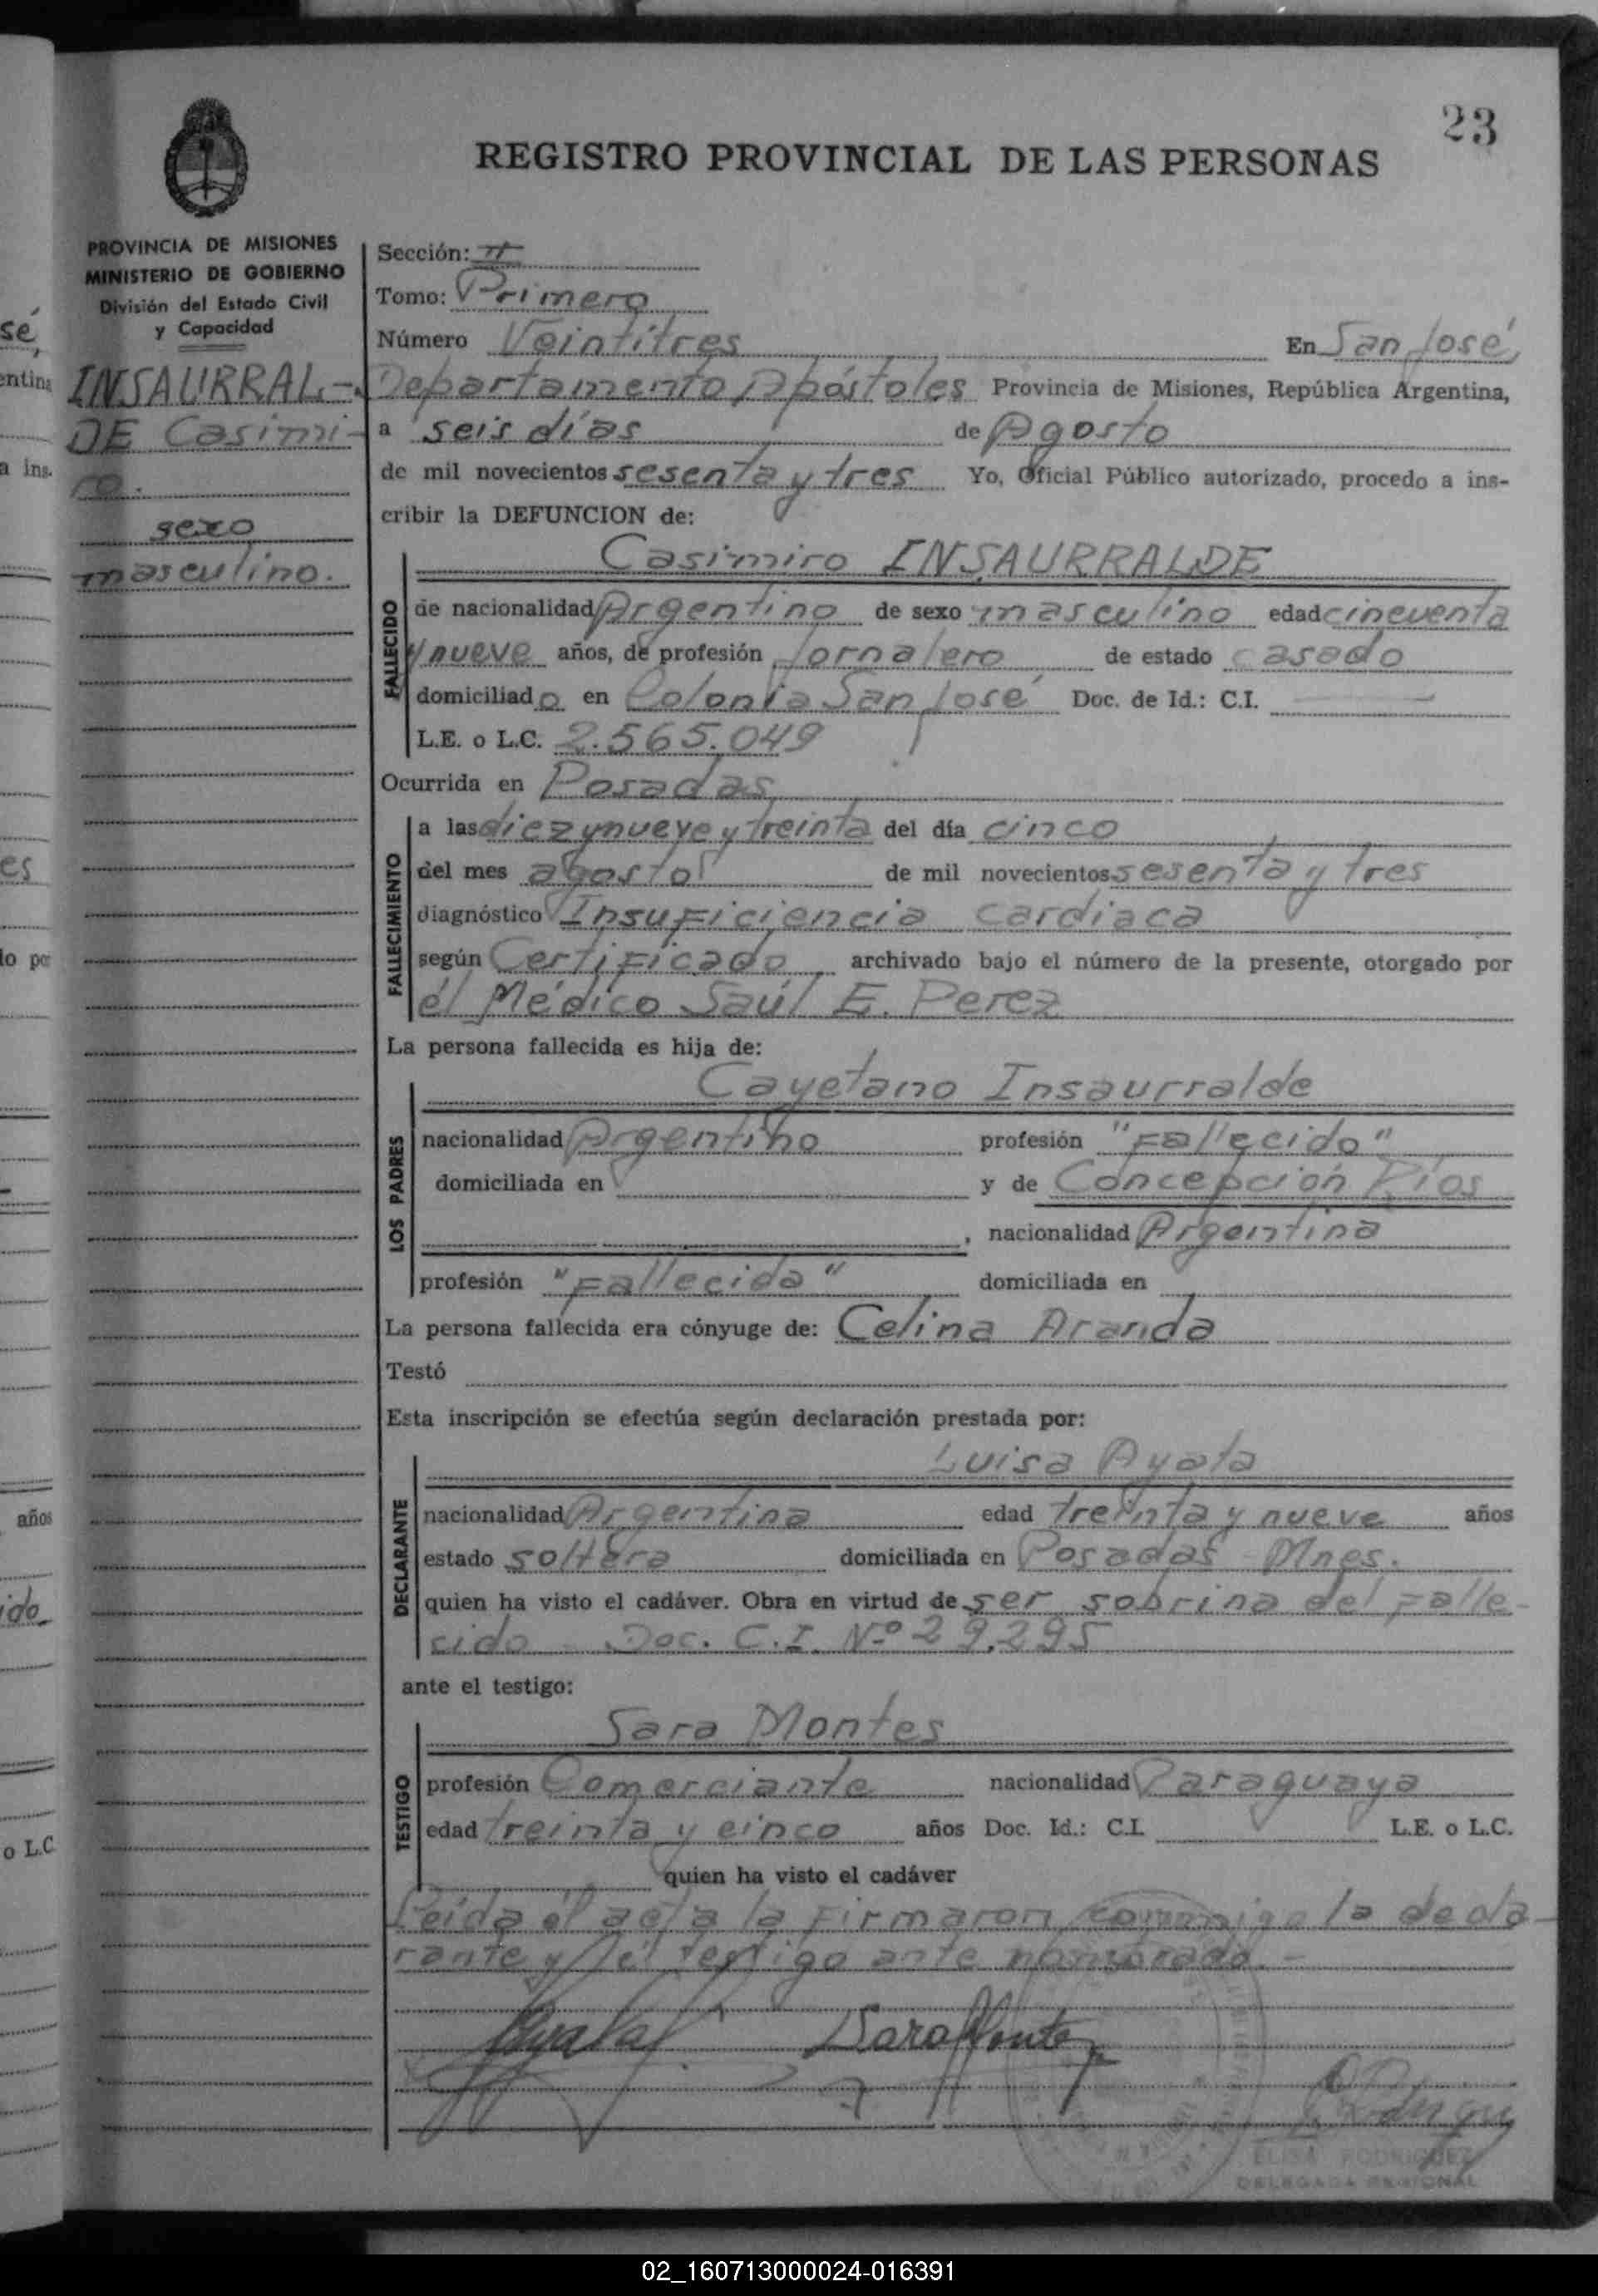 23
REGISTRO PROVINCIAL DE LAS PERSONAS
PROVINCIA DE MISIONES
MINISTERIO DE GOBIERNO
División del Estado Civil
y Capacidad
INSAURRAL-
DE Casimi-
ro.
sexo
masculino.
Sección: II
Tomo: Primero
Número Veintitres En San José,
Departamento Apóstoles Provincia de Misiones, República Argentina,
a seis días de Agosto
de mil novecientos sesenta y tres Yo, Oficial Público autorizado, procedo a ins-
cribir la DEFUNCION de:
Casimiro INSAURRALDE
FALLECIDO
de nacionalidad Argentino de sexo masculino edad cincuenta
y nueve años, de profesión Jornalero de estado casado
domiciliado en Colonia San José Doc. de Id.: C.I.
L.E. o L.C. 2.565.049
Ocurrida en Posadas
FALLECIMIENTO
a las diez y nueve y treinta del día cinco
del mes agosto de mil novecientos sesenta y tres
diagnóstico Insuficiencia cardiaca
según Certificado archivado bajo el número de la presente, otorgado por
el Médico Saúl E. Perez
La persona fallecida es hija de:
Cayetano Insaurralde
LOS PADRES
nacionalidad Argentino profesión "Fallecido"
domiciliada en y de Concepción Ríos
, nacionalidad Argentina
profesión "Fallecida" domiciliada en
La persona fallecida era cónyuge de: Celina Aranda
Testó
Esta inscripción se efectúa según declaración prestada por:
Luisa Ayala
DECLARANTE
nacionalidad Argentina edad treinta y nueve años
estado soltera domiciliada en Posadas - Mnes.
quien ha visto el cadáver. Obra en virtud de ser sobrina del falle-
cido - Doc. C.I. Nº 29.295
ante el testigo:
Sara Montes
TESTIGO
profesión Comerciante nacionalidad Paraguaya
edad treinta y cinco años Doc. Id.: C.I. L.E. o L.C.
quien ha visto el cadáver
Leída el acta la firmaron conmigo la decla-
rante y el testigo ante nombrado.-
Ayala Sara Montes
ELISA RODRIGUEZ
DELEGADA REGIONAL
sé,
entina
a ins.
es
lo por
años
ido
o L.C.
02_160713000024-016391